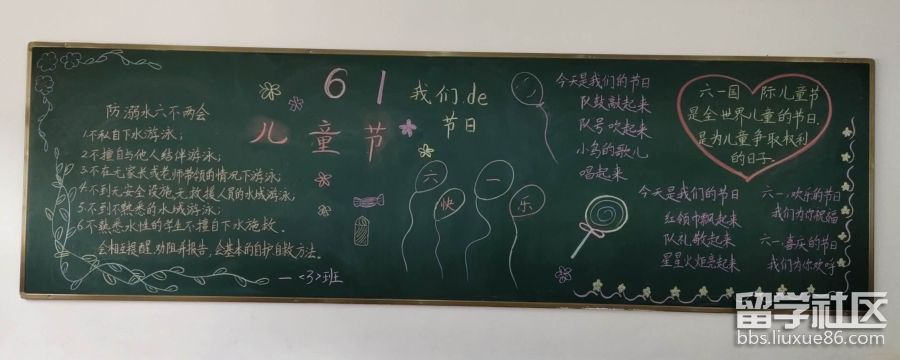 防溺水六不两会
1.不私自下水游泳；
2.不擅自与他人结伴游泳；
3.不在无家长或老师带领的情况下游泳；
4.不到无安全设施、无救援人员的水域游泳；
5.不到不熟悉的水域游泳；
6.不熟悉水性的学生不擅自下水施救。
会相互提醒、劝阻并报告，会基本的自护自救方法。
一<3>班
61
儿童节
我们.de
节日
六一
快乐
今天是我们的节日
队鼓敲起来
队号吹起来
小鸟的歌儿
唱起来
今天是我们的节日
红领巾飘起来
队礼敬起来
星星火炬亮起来
六一国 际儿童节
是全世界儿童的节日,
是为儿童争取权利
的日子.
六一.欢乐的节日
我们为你祝福
六一.喜庆的节日
我们为你欢呼
留学社区
bbs.liuxue86.com